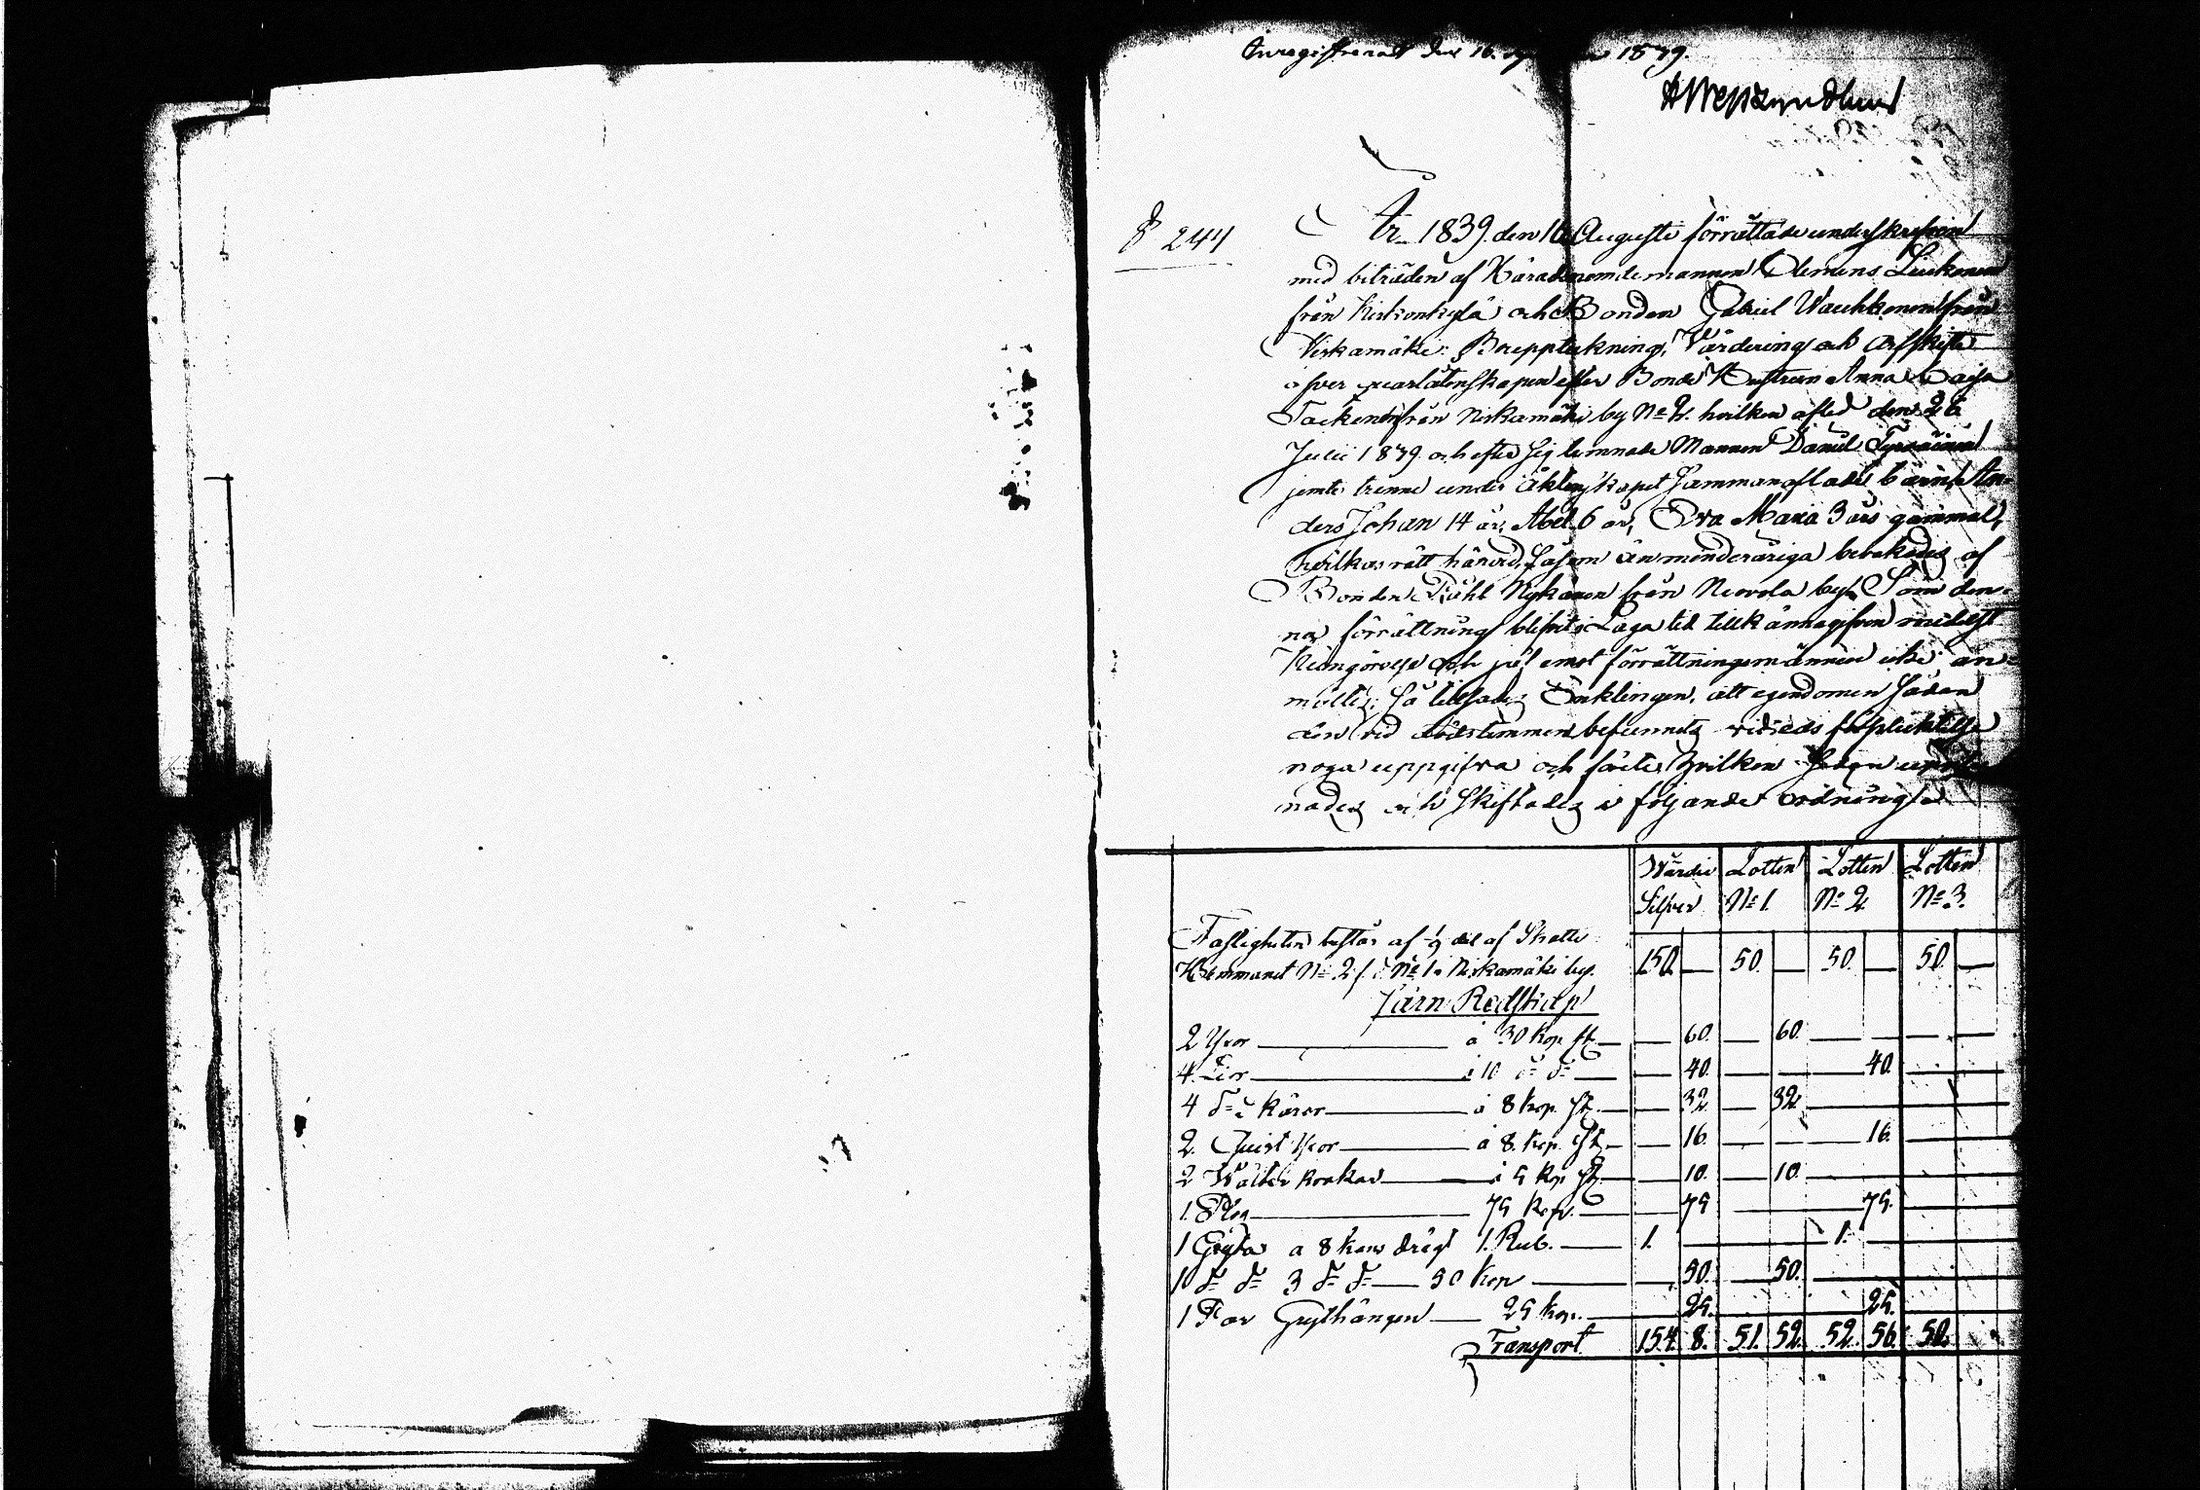 Inregistrerat den 16 1839.
§ 244
År 1839 den 16 Augusti förrättade underskrefven
med biträden af Häradsnämdemannen Clemens Liukonen
från Kirkonkylä och Bonden Gabriel Wauhkonen från
Niskamäki: Bouppteckning, Värdering och Arfskifte
öfver qvarlåtenskapen efter Bonde Hustrun Anna Caisa
från Niskamäki by No 2. hvilken afled den 26
Julii 1839 och efter sig lemnade Mannen Daniel
jemte trenne under äktenskapet Sammanaflade barn, An-
ders Johan 14 år, Abel 6 år, Eva Maria 3 års gammal,
hvilkas rätt härvid, såsom än minderåriga bevakades af
Bonden Påhl Nykänen från Neovola by. Som den-
na förrättning blifvit i Laga tid tillkännagifven medelst
Kungörelse och jäf emot förrättningsmännen icke an-
mältes; så tillsades Enklingen, att egendomen sådan
den vid dödstimmen befunnits vid eds förpliktelse
noga uppgifva och förete, hvilken sedan
nades och Skiftades i följande ordning
Värde Silfver Lotten No 1. Lotten No 2. Lotten No 3.
Fastigheten består af 1/9 del af Skatte
Hemmanet No 2 No 1 i Niskamäki by. 150 — 50. — 50. — 50. —
Järn Redskap
2 Yxor à 30 Kop st. — 60. — 60. — — —
4 Liar à 10 do do — 40. — — 40. — —
4 do à 8 Kop. st. — 32. — 32.
2. Yxor à 8. Kop. st. — 16. — — 16.
2 krokar à 5 Kop st. — 10. — 10.
1. Plog 75 Kop. — 75 — 75.
1 Gryta a 8 kans drägt 1. Rub. — 1. — 1.
10 do do 3 do do — 50 Kop — 50. — 50.
1 Par Grythängen — 25 kop. — 25. — 25.
Transport 154. 8. 51. 52. 52. 56. 50.